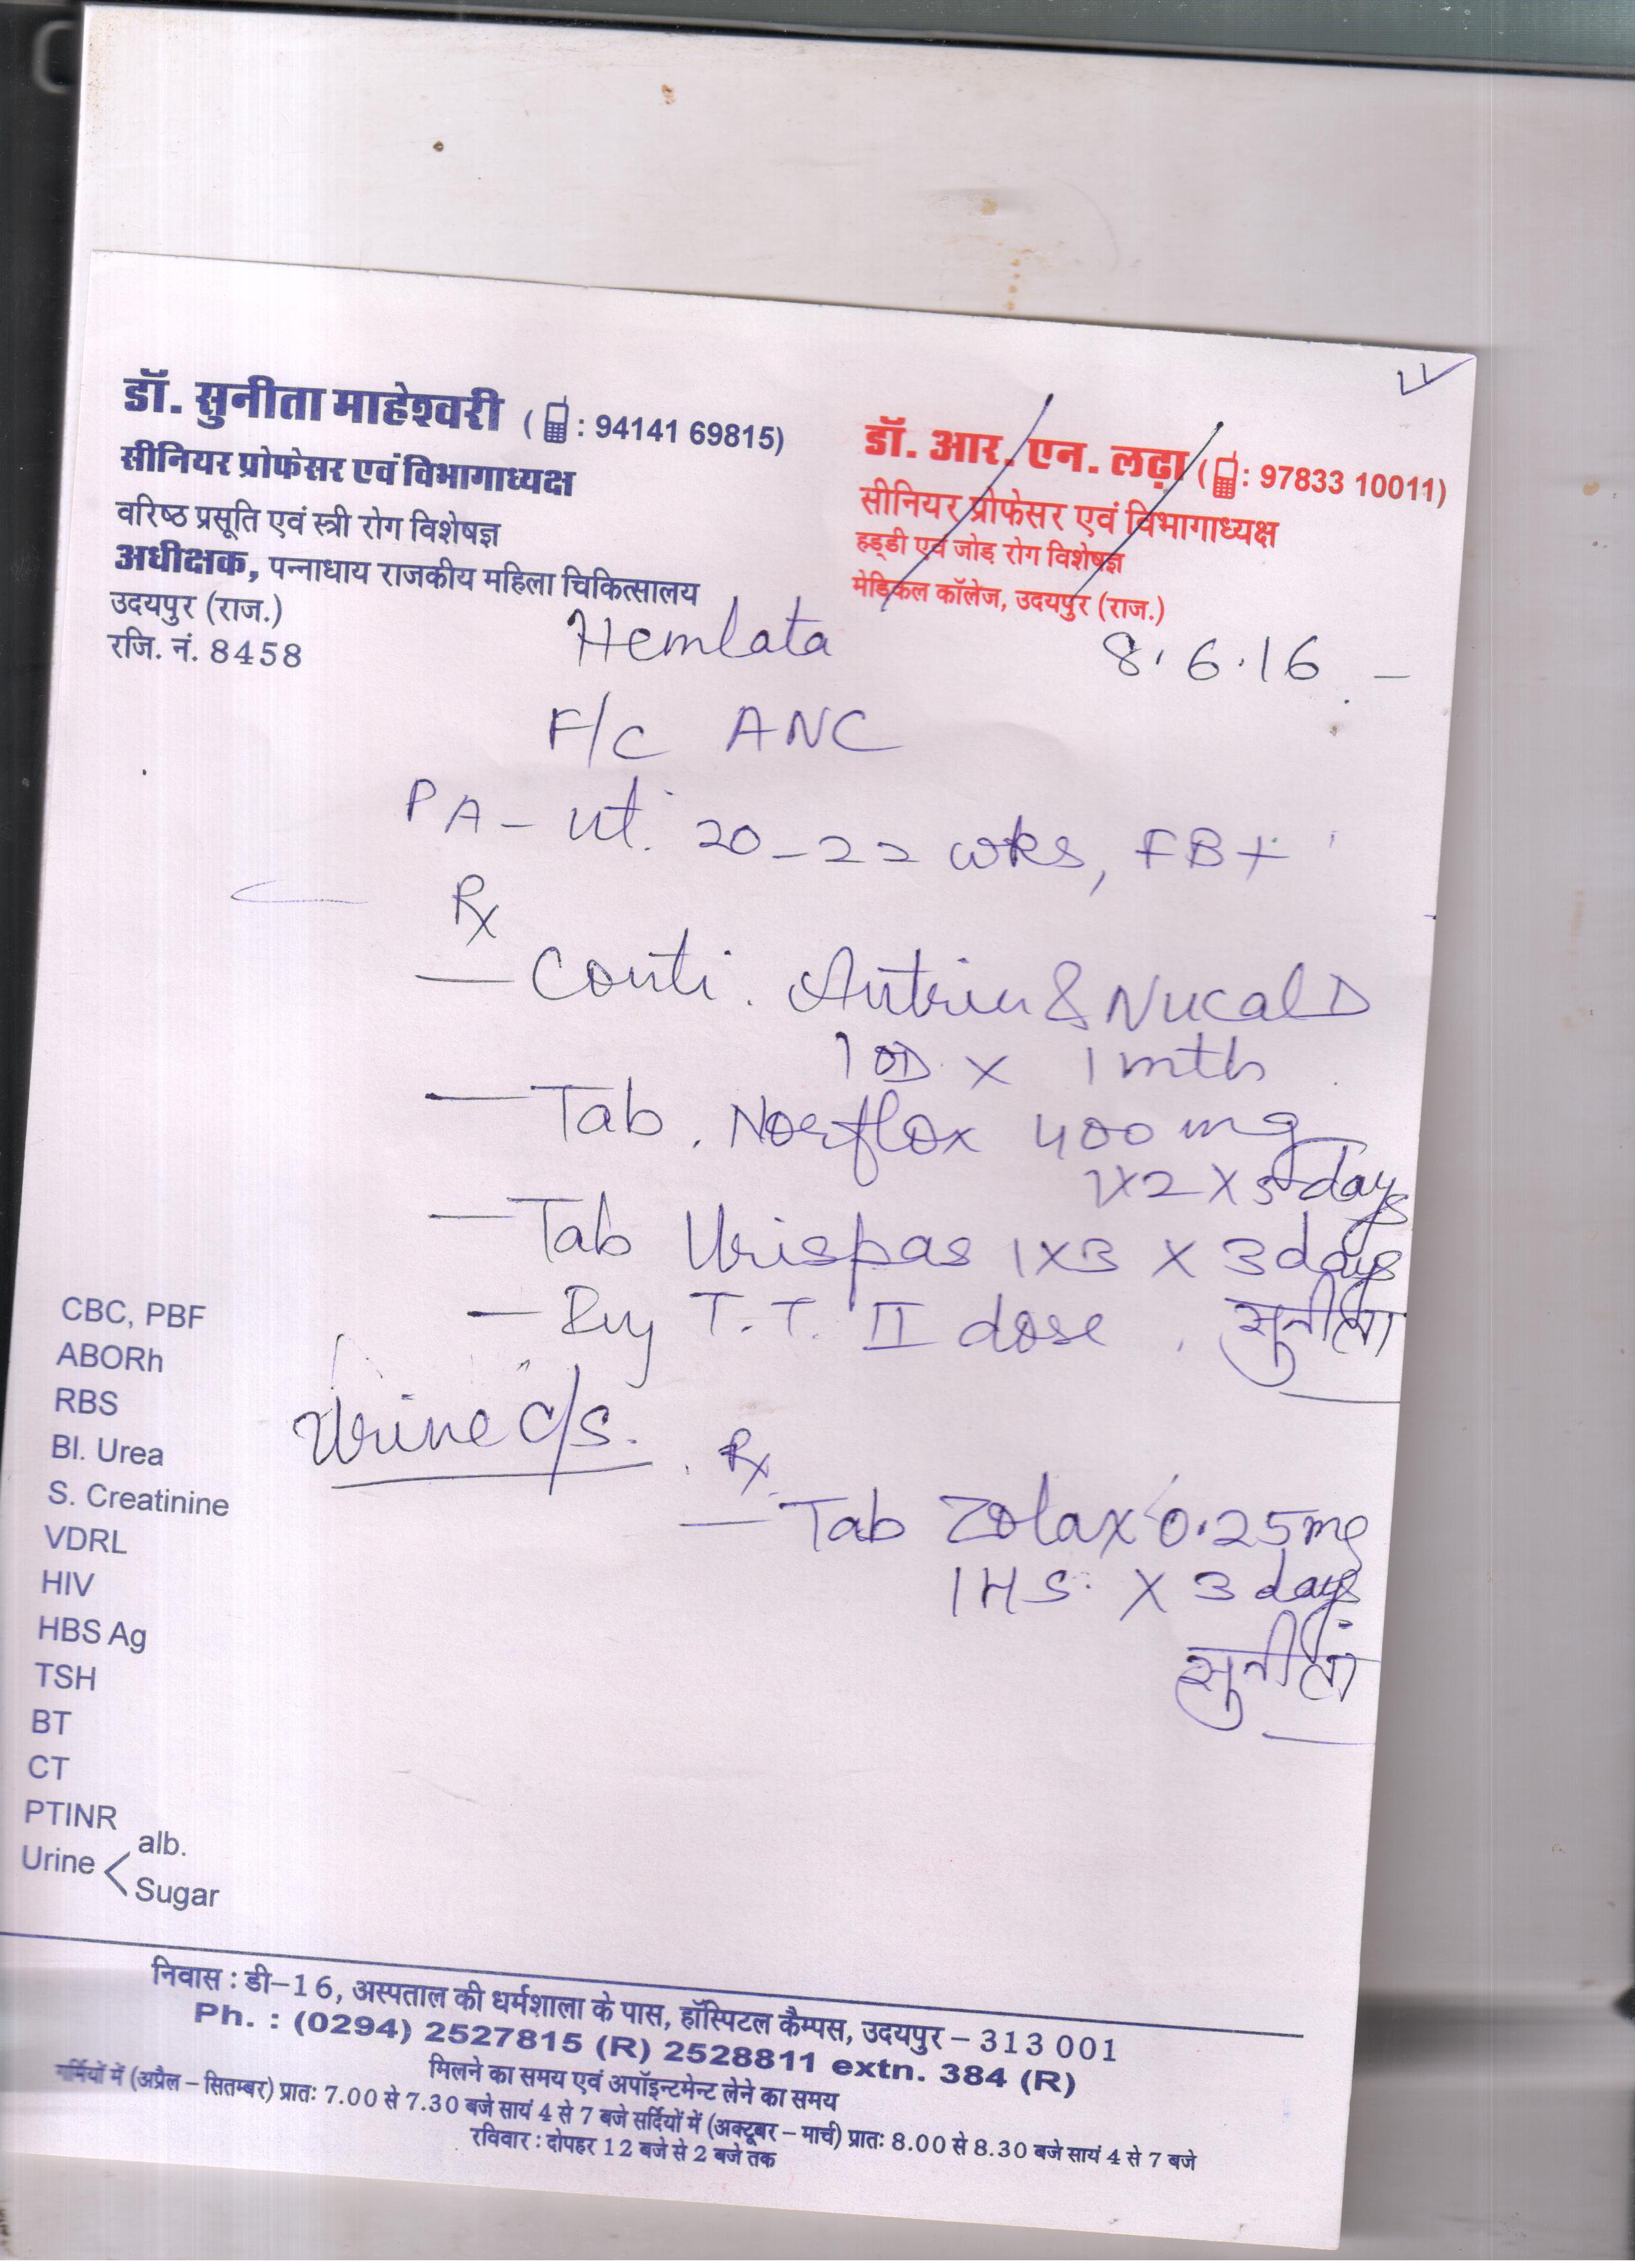 डॉ. सुनीता माहेश्वरी (: 94141 69815)
सीनियर प्रोफेसर एवं विभागाध्यक्ष
वरिष्ठ प्रसूति एवं स्त्री रोग विशेषज्ञ
अधीक्षक, पन्नाधाय राजकीय महिला चिकित्सालय
उदयपुर (राज.)
रजि. नं. 8458
डॉ. आर. एन. लढ़ा (: 97833 10011)
सीनियर प्रोफेसर एवं विभागाध्यक्ष
हड्डी एवं जोड़ रोग विशेषज्ञ
मेडिकल कॉलेज, उदयपुर (राज.)
Hemlata 8.6.16
F/C ANC
PA - ut. 20-22 wks, FB+
Rx
- Conti. Autrin & Nucal D
1 OD x 1 mth
- Tab. Norflox 400 mg
1x2 x 5 days
- Tab Urispas 1x3 x 3 days
- Inj T.T. II dose. सुनीता
Urine c/s.
Rx
- Tab Zolax 0.25mg
1 HS. x 3 days
सुनीता
CBC, PBF
ABORh
RBS
Bl. Urea
S. Creatinine
VDRL
HIV
HBS Ag
TSH
BT
CT
PTINR
Urine < alb.
Sugar
निवास : डी-16, अस्पताल की धर्मशाला के पास, हॉस्पिटल कैम्पस, उदयपुर - 313 001
Ph. : (0294) 2527815 (R) 2528811 extn. 384 (R)
मिलने का समय एवं अपॉइन्टमेन्ट लेने का समय
गर्मियों में (अप्रैल - सितम्बर) प्रातः 7.00 से 7.30 बजे सायं 4 से 7 बजे सर्दियों में (अक्टूबर - मार्च) प्रातः 8.00 से 8.30 बजे सायं 4 से 7 बजे
रविवार : दोपहर 12 बजे से 2 बजे तक